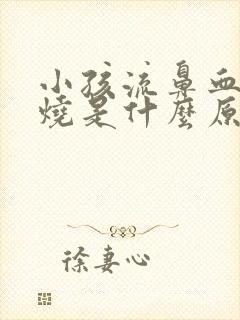 小孩流鼻血
燒是什麼原
徐妻心